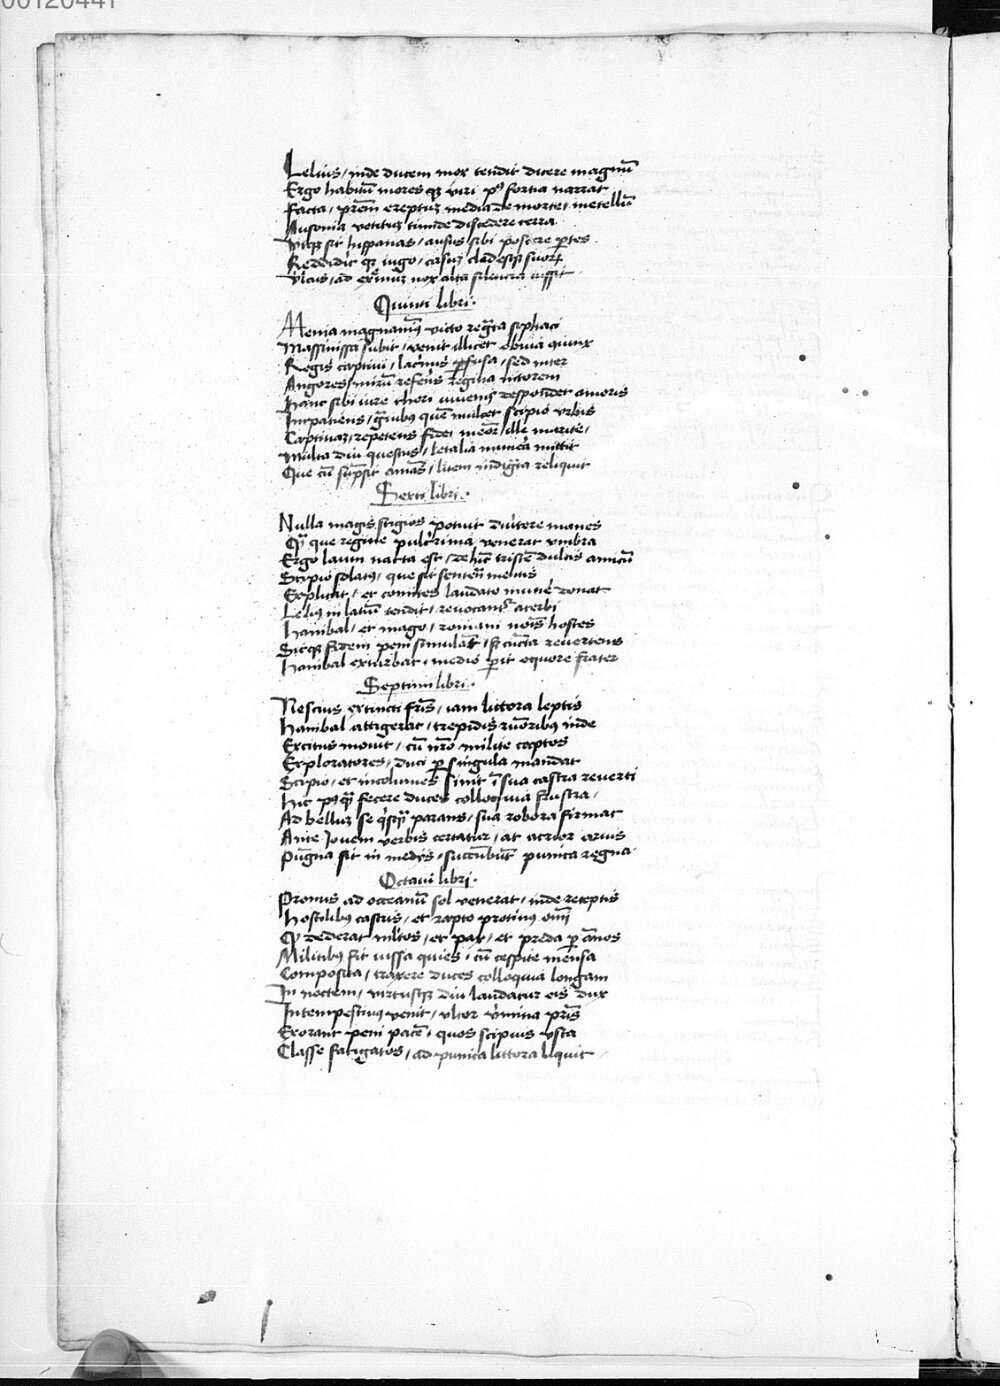 00120441
Lelius / inde ducem mox tendit dicere magnū
Ergo habitū mores qꝫ viri pꝰ fortia narrat
Facta / premī ereptuꝫ media de morte / metellū
Ausonia vetituꝫ timide discedere terra
Utqꝫ sit hispanas / ausus sibi poscere ꝑtes
Reddidit qꝫ iugo / casuꝫ
ad nox alta silencia iussit
Quinti libri .
Menia magnanimꝰ victo regnata siphaci
Massinissa subit / venit illicet obvia quinx
Regis captivi / lacrimis ꝑfusa / sed inter
Angores / mirū referēs regina nitorem
Hanc sibi iure thori iuvenis despondet amoris
Inpatiens / gravibꝰ quē mulcet scipio verbis
Captivaꝫ repetens fidei meōr / ille marite /
Multa diu questus / letalia munera mittit
Que cū sūpsit amās / litem indignata reliquit
Sexti libri .
Nulla magis stigios potuit divertere manes
Qꝫ que regine pulcrima venerat umbra
Ergo locum nacta est / dehīc tristē dulcis amicū
Scipio solatꝰ / que sit sentēn mentis
Explicat / et comites laudato munere donat
Leliꝰ in latiū tendit / revocantʳ acerbi
Hanibal / et mago / romani noīs hostes
Sicqꝫ fidem peni simulāt / st cūcta revertens
Hanibal exturbat / medio ꝑit equore frater
Septimi libri .
Nescius extincti frīs / iam littora leptis
Hanibal attigerat / trepidis rumoribꝰ inde
Excitus movit / cū nr̄o milite captos
Exploratores / duci ꝑ singula mandat
Scipio / et incolumes sinit ī sua castra reverti
Hic pꝰqꝫ fecere duces colloquia frustra /
Ad belluꝫ se parans / sua robora firmat
Ante Iovem verbis certatur / at acrior arvis
Pugna fit in medijs / succūbūt punica regna
Octavi libri .
Pronus ad occeanū sol venerat / inde receptis
Hostilibꝰ castris / et rapto protinꝰ omī
Qꝫ dederat mltos / et pax / et preda ꝑ annos
Militibꝰ fit iussa quies / cū cespite mensa
Composita / traxere duces colloquia longam
In noctem / virtusqꝫ diu laudatur eis dux
Intempestivꝰ venit / ultor pr̄is
Exorant peni pacē / quos scipius usta
Classe fatigatos / ad punica littora liquit